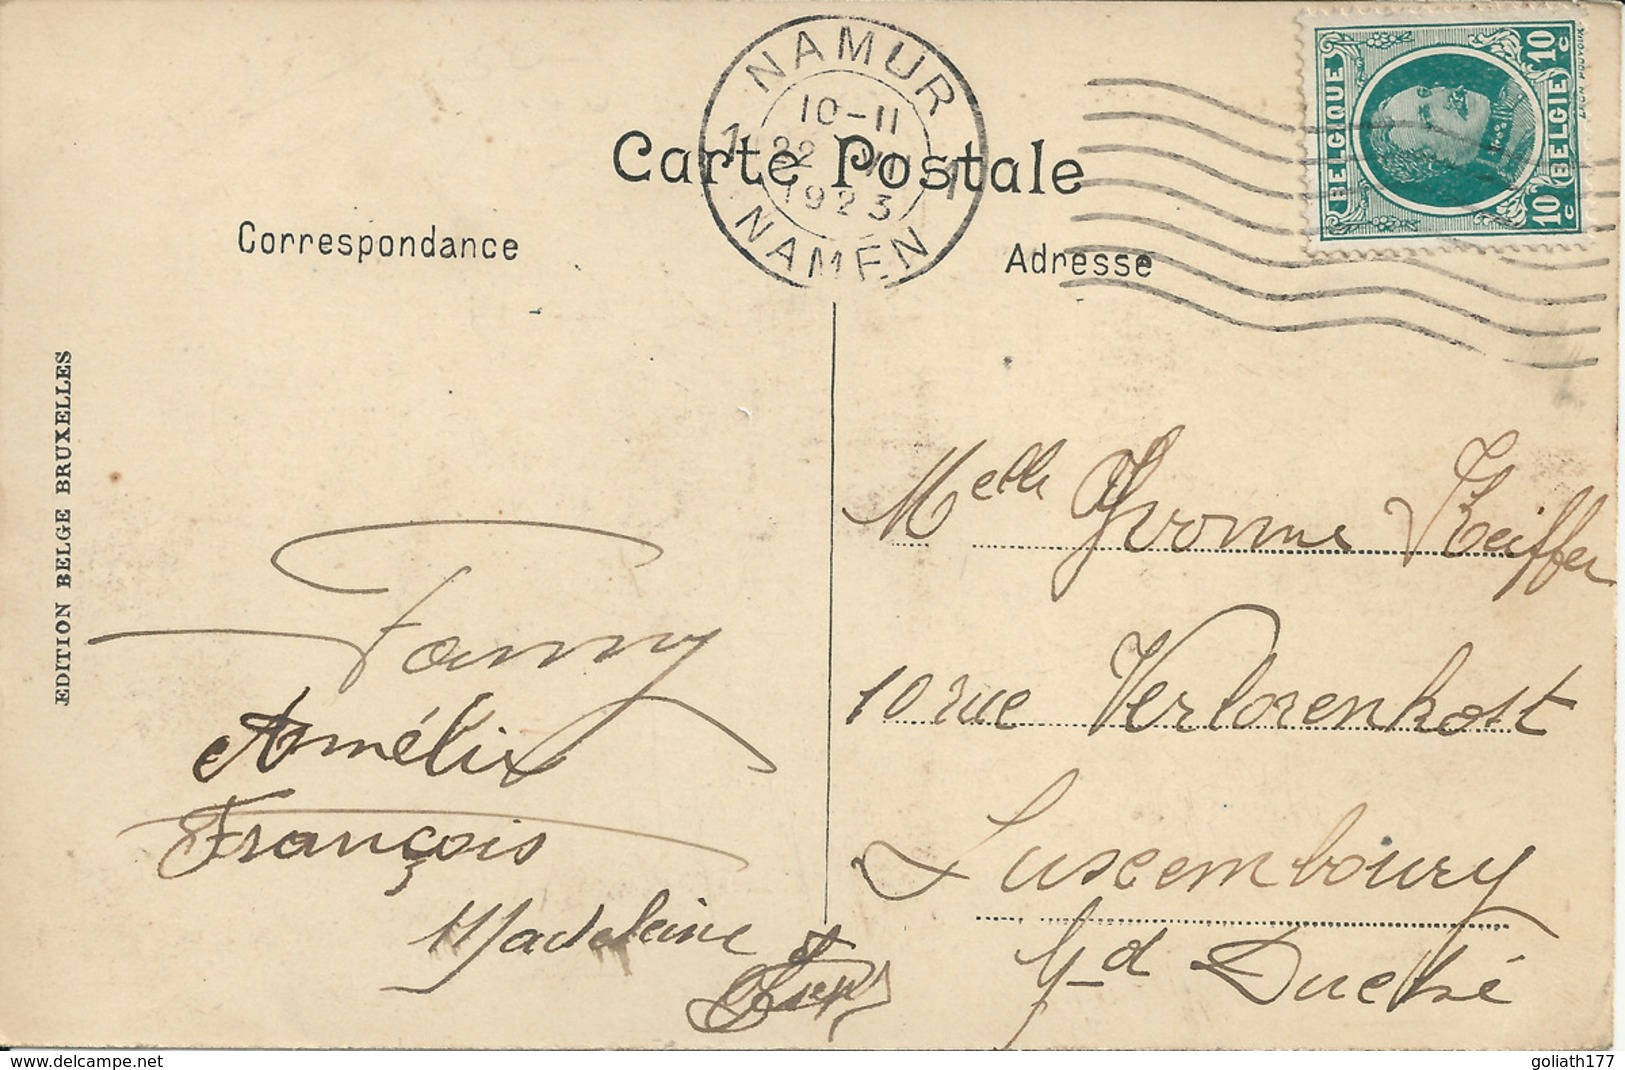 NAMUR
10-11
22
1923
NAMEN
1 1
BELGIQUE
BELGIE
10 c
10 c
Carte Postale
Correspondance
Adresse
EDITION BELGE BRUXELLES
Melle Yvonne Keiffer
10 rue Verlorenkost
Luxembourg
Gd Duché
Fanny
Amélie
François
Madeleine
delcampe.net
goliath177